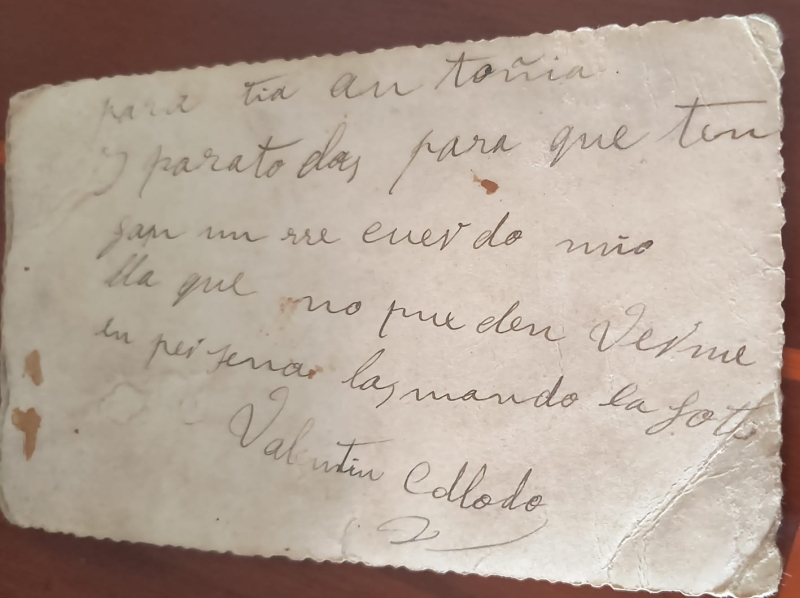 para tia an toñia.
y parato das para que ten
gan un rre cuerdo mio
lla que no pue den verme
en persona las mando la foto
Valentin Collodo